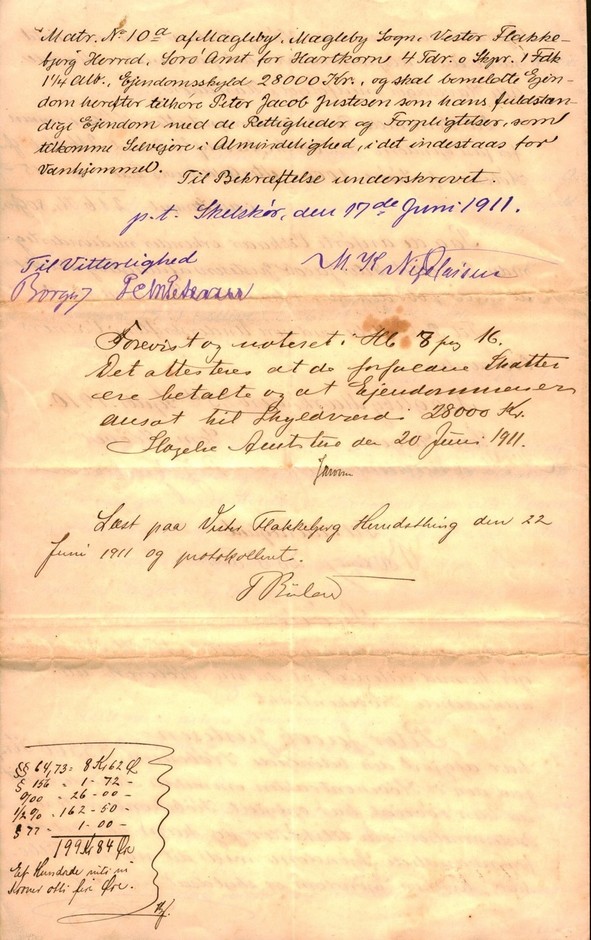 Matr. No 10a af Magleby, Magleby Sogn, Vester Flakke-
bjerg Herred, Sorö Amt for Hartkorn 4 Tdr. 0 Skpr. 1 Fdk
1¼ Alb., Ejendomsskyld 28000 Kr., og skal bemeldte Ejen-
dom herefter tilhøre Peter Jacob Justesen som hans fuldstæn-
dige Ejendom med de Rettigheder og Forpligtelser, som
tilkomme Selvejere i Almindelighed, idet indestaas for
Vanhjemmel.
Til Bekræftelse underskrevet.
p.t. Skelskør, den 17de Juni 1911.
Til Vitterlighed
M. K.
Forevist og noteret i Hb 8 pag 16.
Det attesteres at de forfaldne Skatter
ere betalte og at Ejendommen er
ansat til Skyldværdi 28000 Kr.
Slagelse Amtstue den 20 Juni 1911.
Læst paa Vester Flakkebjerg Herredsthing den 22
Juni 1911 og protokolleret.
§§ 64,73 = 8 Kr 62 Ø
§ 156 - 1 - 72 -
- 26 - 00 -
1/2 % - 162 - 50 -
§ 77 - 1 - 00 -
199 Kr 84 Øre
Et Hundrede niti ni
Kroner otti fire Øre.